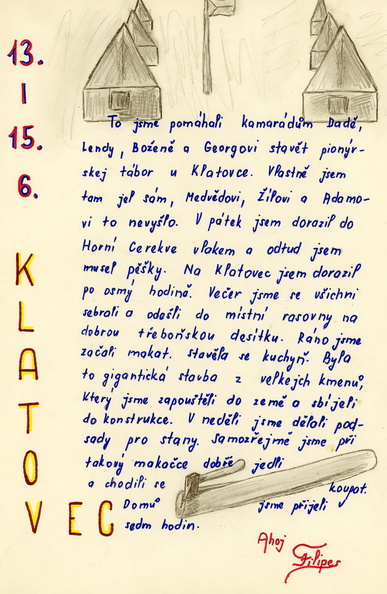 13.
-
15.
6.
KLATOVEC
To jsme pomáhali kamarádům Dadě,
Lendy, Boženě a Georgovi stavět pionýr-
skej tábor u Klatovce. Vlastně jsem
tam jel sám, Medvědovi, Žílovi a Adamo-
vi to nevyšlo. V pátek jsem dorazil do
Horní Cerekve vlakem a odtud jsem
musel pěšky. Na Klatovec jsem dorazil
po osmý hodině. Večer jsme se všichni
sebrali a odešli do místní rasovny na
dobrou třeboňskou desítku. Ráno jsme
začali makat. Stavěla se kuchyň. Byla
to gigantická stavba z velkejch kmenů,
Který jsme zapouštěli do země a sbíjeli
do konstrukce. V neděli jsme dělali pod-
sady pro stany. Samozřejmě jsme při
takový makačce dobře jedli
a chodili se koupat.
Domů jsme přijeli
sedm hodin.
Ahoj
Filipes